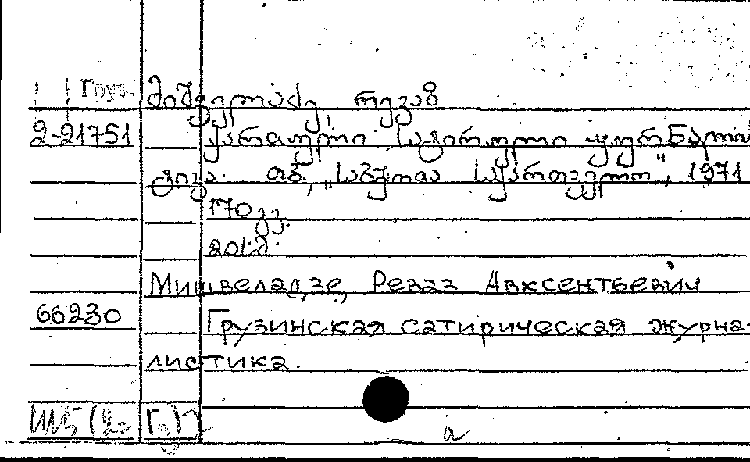 Груз. მიშველაძე, რევაზ
2-21751 ქართული სატირული ჟურნალის
ტიკა. თბ., "საბჭოთა საქართველო", 1971
170 გვ.
20სმ.
Мишвеладзе, Реваз Авксентьевич
66230 Грузинская сатирическая журна-
листика.